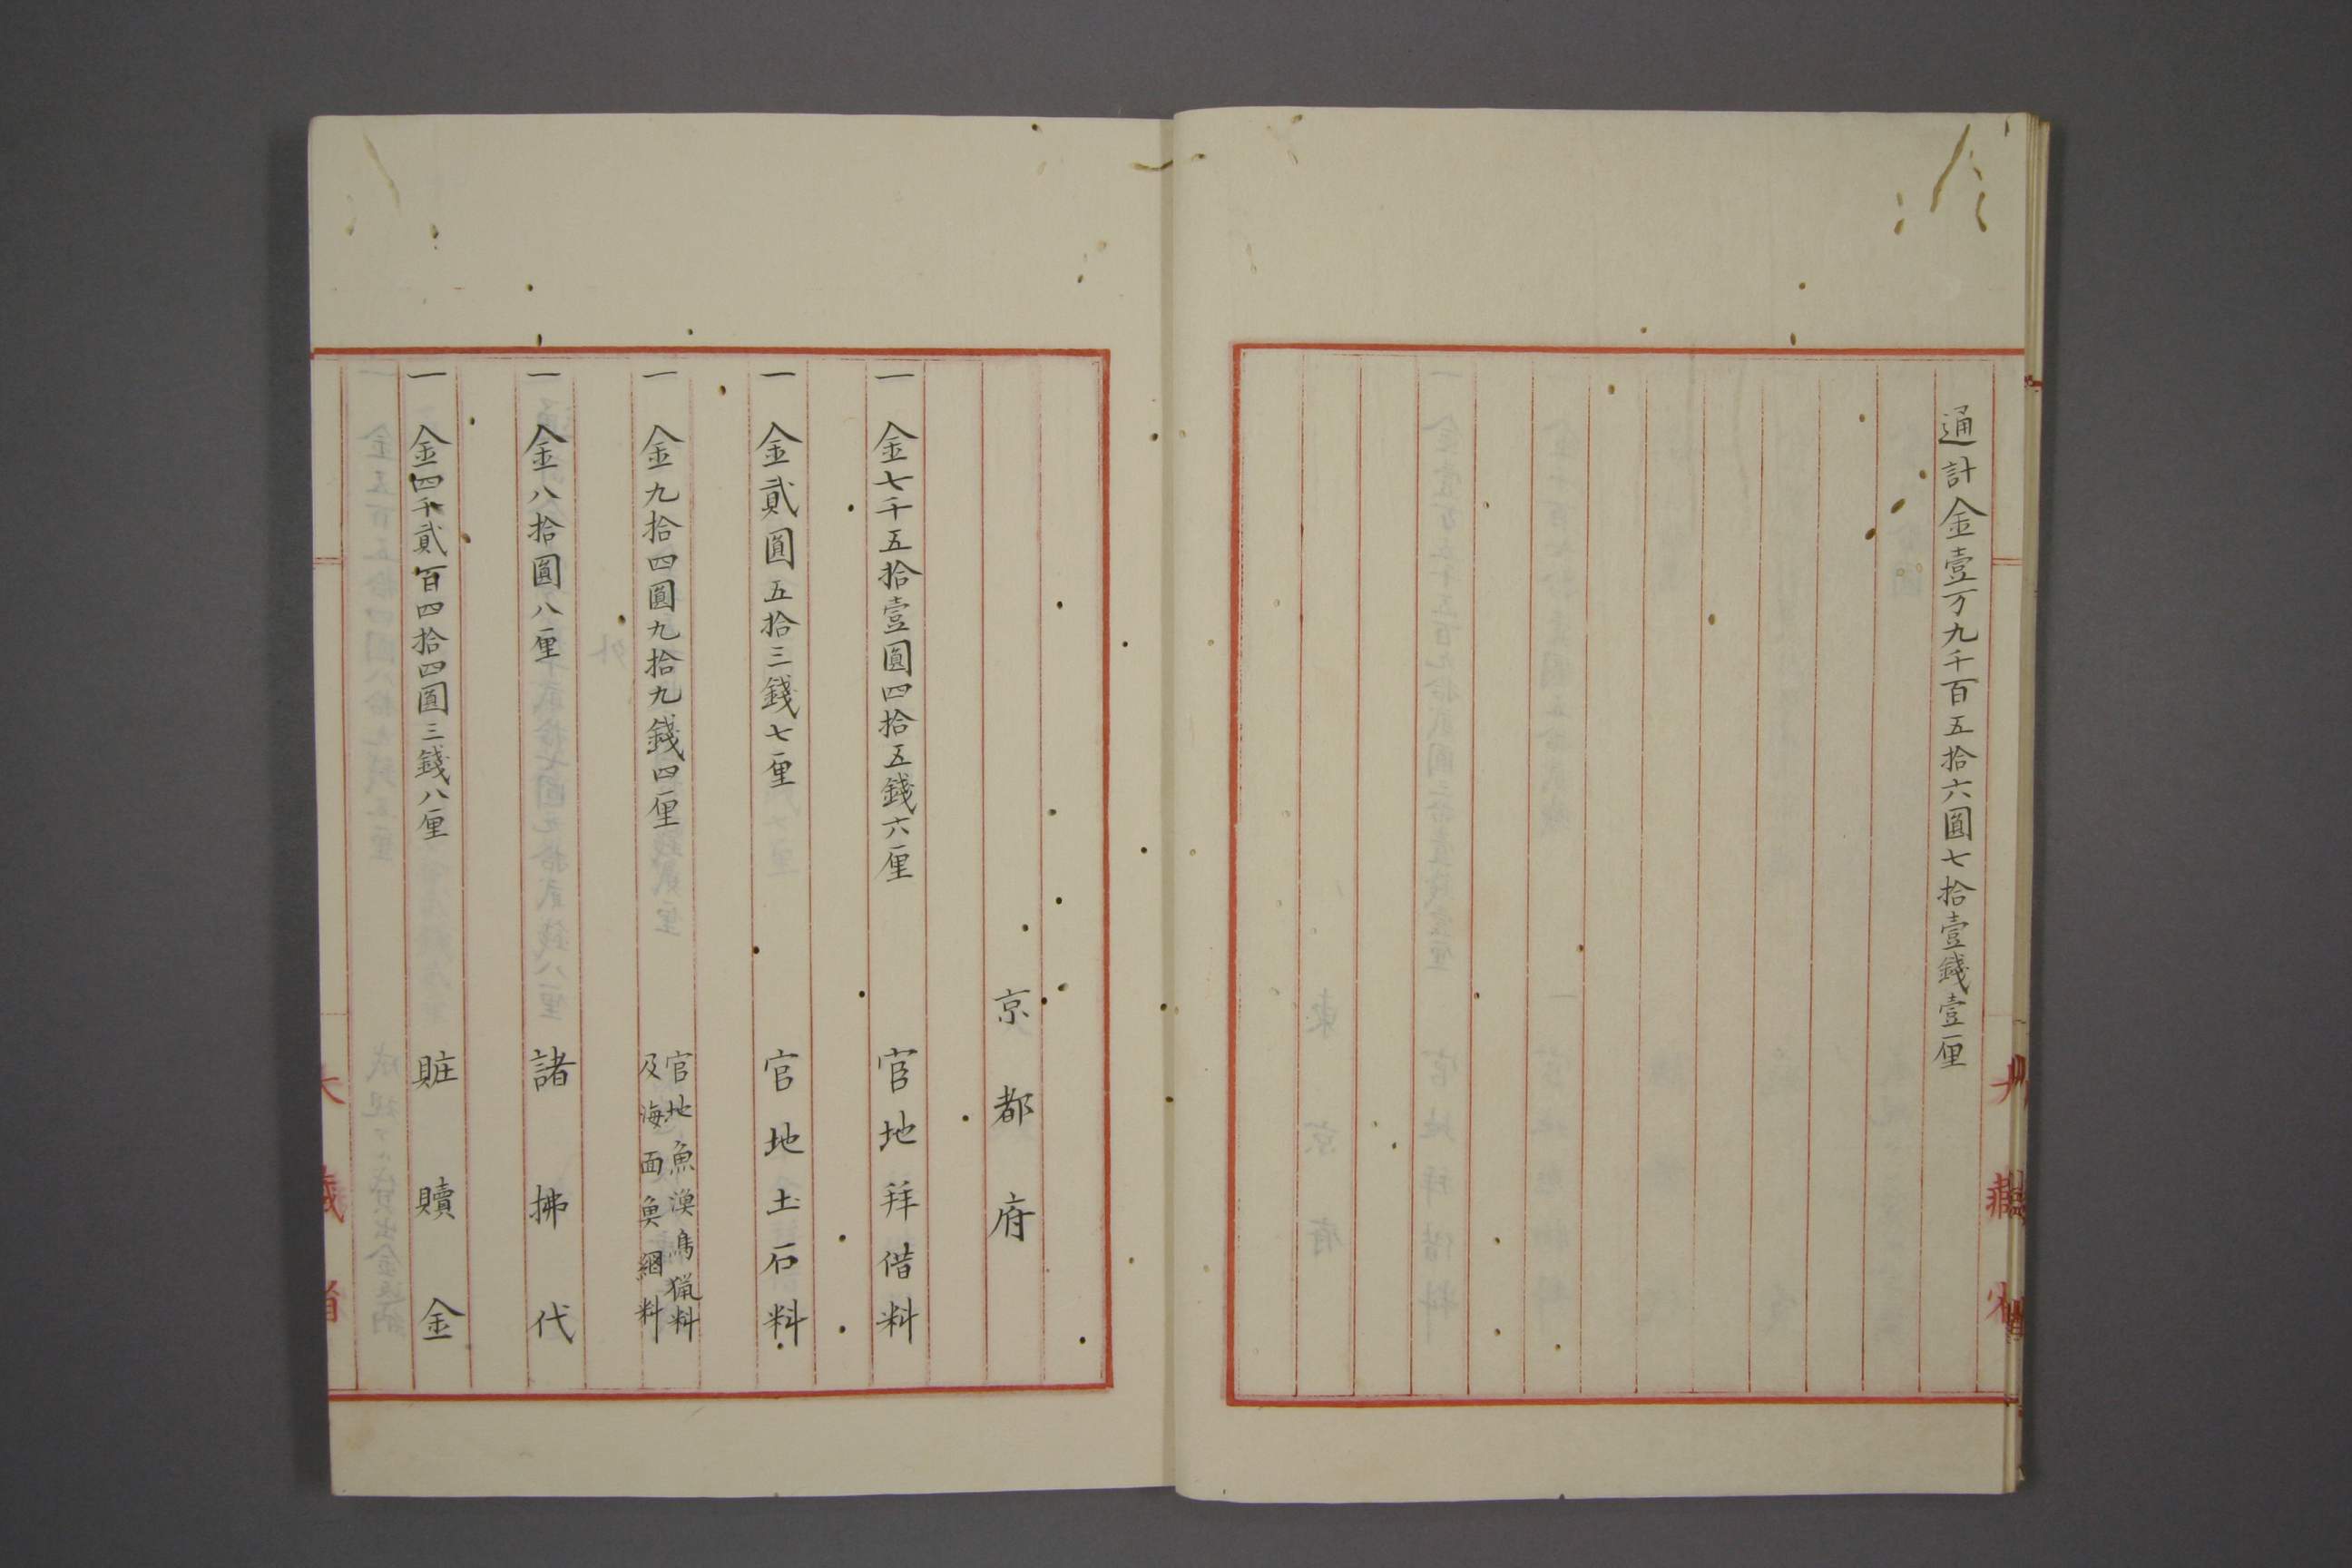 通計金壹万九千百五拾六圓七拾壹錢壹厘
京都府
一 金七千五拾壹圓四拾五錢六厘 官地拜借料
一 金貳圓五拾三錢七厘 官地土石料
一 金九拾四圓九拾九錢四厘 官地魚漁鳥猟料
及海面魚網料
一 金八拾圓八厘 諸拂代
一 金四千貳百四拾四圓三錢八厘 賍贖金
大藏省